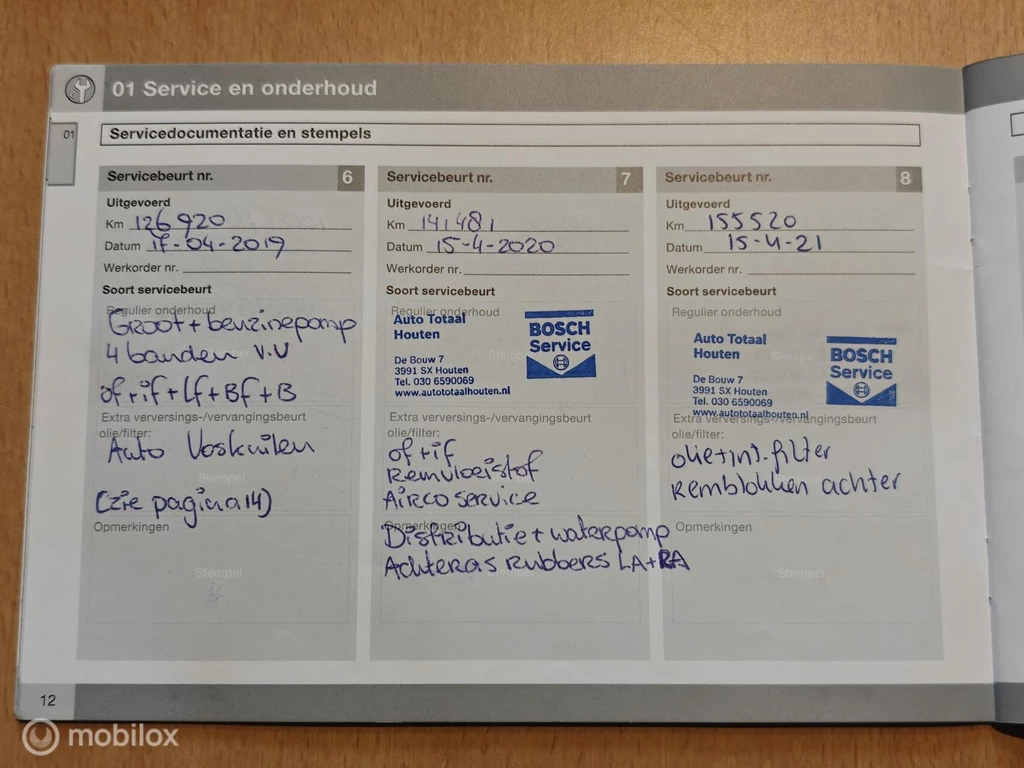 01 Service en onderhoud
01
Servicedocumentatie en stempels
Servicebeurt nr. 6
Uitgevoerd
Km 126920
Datum 17-04-2019
Werkorder nr.
Soort servicebeurt
Regulier onderhoud
Groot + benzinepomp
4 banden V.V
of + if + Lf + Bf + B
Extra verversings-/vervangingsbeurt
olie/filter:
Auto Voskuilen
Stempel
(zie pagina 14)
Opmerkingen
Stempel
Servicebeurt nr. 7
Uitgevoerd
Km 141481
Datum 15-4-2020
Werkorder nr.
Soort servicebeurt
Regulier onderhoud
Auto Totaal
Houten
BOSCH
Service
De Bouw 7
3991 SX Houten
Tel. 030 6590069
www.autototaalhouten.nl
Extra verversings-/vervangingsbeurt
olie/filter:
of + if
Remvloeistof
Stempel
Airco service
Opmerkingen
Distributie + waterpomp
Achteras rubbers LA + RA
Stempel
Servicebeurt nr. 8
Uitgevoerd
Km 155520
Datum 15-4-21
Werkorder nr.
Soort servicebeurt
Regulier onderhoud
Auto Totaal
Houten
Stempel
BOSCH
Service
De Bouw 7
3991 SX Houten
Tel. 030 6590069
www.autototaalhouten.nl
Extra verversings-/vervangingsbeurt
olie/filter:
olie + int. filter
Remblokken achter
Stempel
Opmerkingen
Stempel
12
mobilox